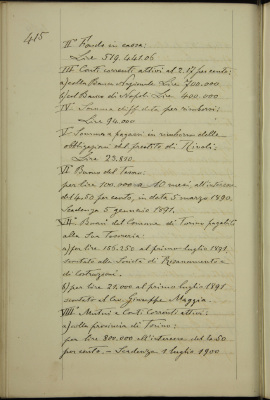 415
II° Fondo in cassa:
Lire 519.441.06
III° Conti correnti attivi al 2.½ per cento:
a) colla Banca Nazionale Lire 700.000
b) col Banco di Napoli Lire 400.000
IV° Somma diff. data per rimborsi:
Lire 94.000
V° Somma a pagarsi in rimborso delle
Obbligazioni del prestito di Rivoli:
Lire 23.810.
VI° Buono del Tesoro:
per lire 100.000 a mesi, all'interesse
del 4.50 per cento, in data 5 marzo 1890.
Scadenza 5 gennaio 1891.
VII° Buoni del Comune di Torino pagabili
alla Sua Tesoreria:
a) per lire 156.250 al primo luglio 1891.
scontato alla Società di Risanamento e
di costruzioni.
b) per lire 21.000 al primo luglio 1891
scontato al Cav. Giuseppe Maggia.
VIII° Mutui e Conti Correnti attivi:
a) colla provincia di Torino:
per lire 800.000 all'interesse del 4.50
per cento. - Scadenza 1 luglio 1900